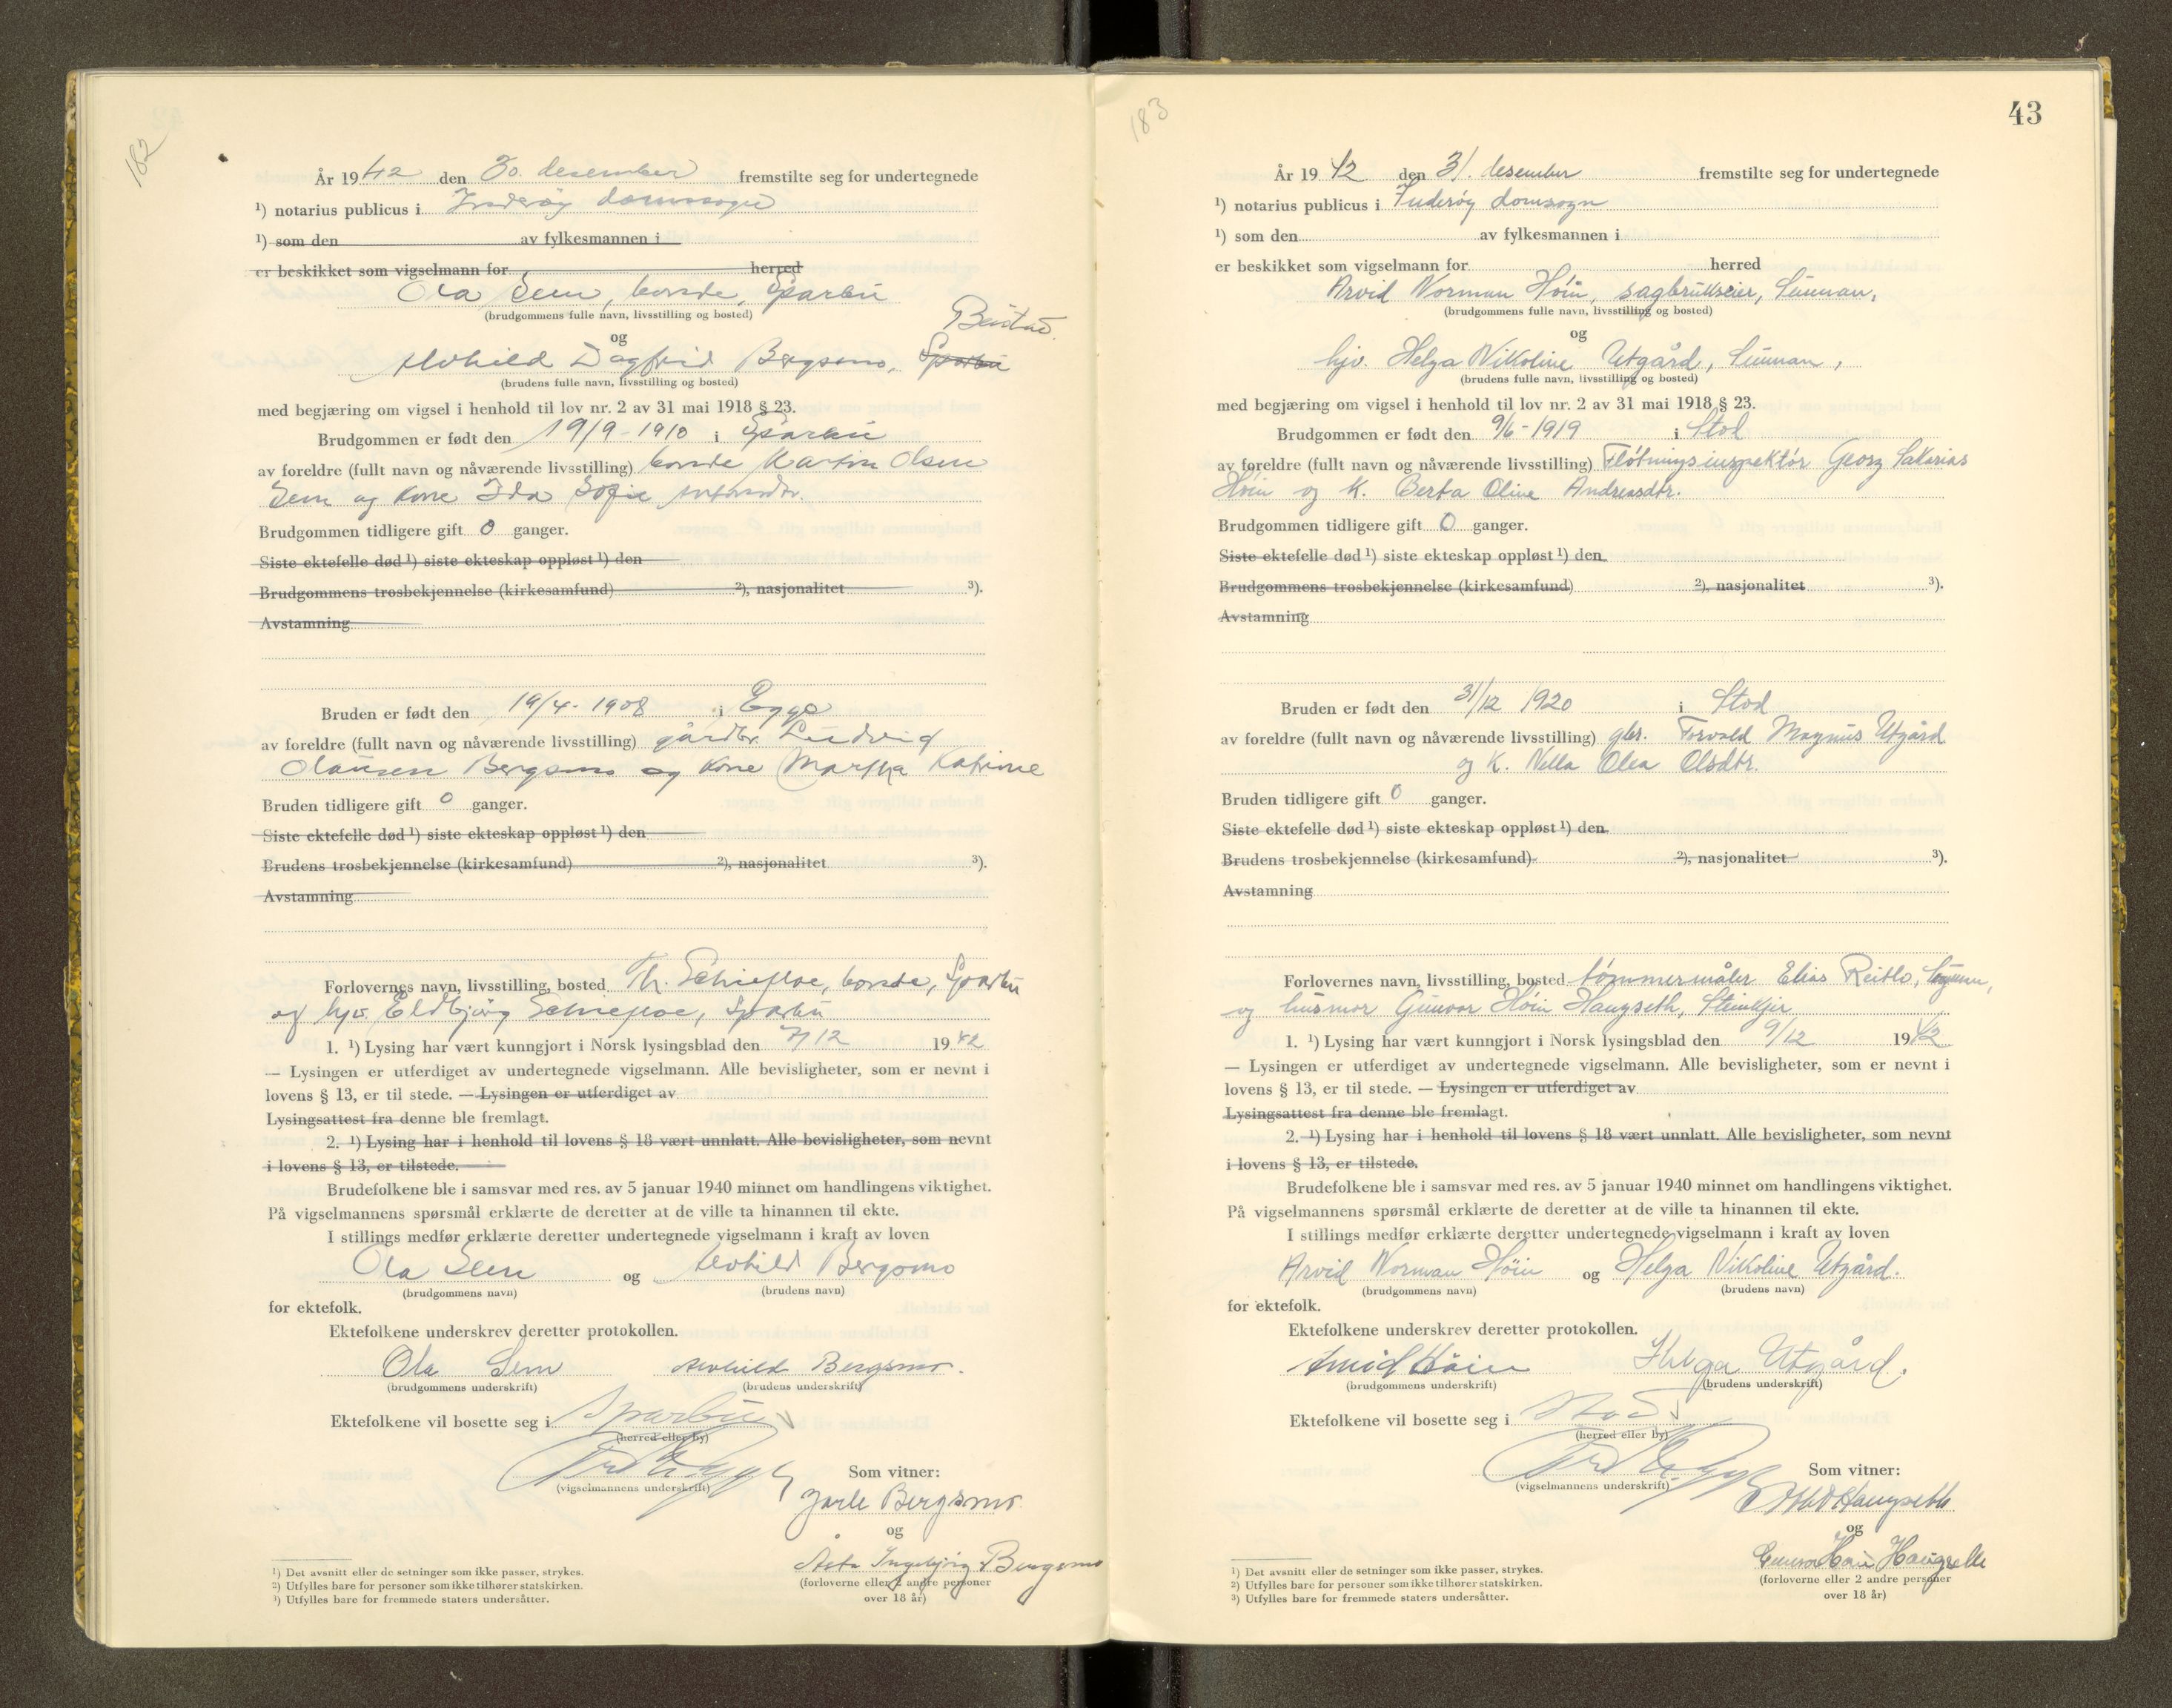 182
År 1942 den 30. desember fremstilte seg for undertegnede
¹) notarius publicus i Inderøy domssogn
¹) som den av fylkesmannen i
er beskikket som vigselmann for herred
Ola Sem, bonde, Sparbu
(brudgommens fulle navn, livsstilling og bosted)
og
Beistad
Alvhild Dagfrid Bergsmo, Sparbu
(brudens fulle navn, livsstilling og bosted)
med begjæring om vigsel i henhold til lov nr. 2 av 31 mai 1918 § 23.
Brudgommen er født den 19/9-1910 i Sparbu
av foreldre (fullt navn og nåværende livsstilling) bonde Martin Olsen
Sem og kone Ida Sofie
Brudgommen tidligere gift 0 ganger.
Siste ektefelle død ¹) siste ekteskap oppløst ¹) den
Brudgommens trosbekjennelse (kirkesamfund) ²), nasjonalitet ³).
Avstamning
Bruden er født den 19/4-1908 i Egge
av foreldre (fullt navn og nåværende livsstilling) gårdbr. Ludvig
Olausen Bergsmo og kone Martha Katrine
Bruden tidligere gift 0 ganger.
Siste ektefelle død ¹) siste ekteskap oppløst ¹) den
Brudens trosbekjennelse (kirkesamfund) ²), nasjonalitet ³).
Avstamning
Forlovernes navn, livsstilling, bosted Th. Schiefloe, bonde, Sparbu
og hjv. Eldbjørg Schiefloe, Sparbu
1. ¹) Lysing har vært kunngjort i Norsk lysingsblad den 7/12 1942
— Lysingen er utferdiget av undertegnede vigselmann. Alle bevisligheter, som er nevnt i
lovens § 13, er til stede. — Lysingen er utferdiget av
Lysingsattest fra denne ble fremlagt.
2. ¹) Lysing har i henhold til lovens § 18 vært unnlatt. Alle bevisligheter, som nevnt
i lovens § 13, er tilstede.
Brudefolkene ble i samsvar med res. av 5 januar 1940 minnet om handlingens viktighet.
På vigselmannens spørsmål erklærte de deretter at de ville ta hinannen til ekte.
I stillings medfør erklærte deretter undertegnede vigselmann i kraft av loven
Ola Sem og Alvhild Bergsmo
(brudgommens navn) (brudens navn)
for ektefolk.
Ektefolkene underskrev deretter protokollen.
Ola Sem Alvhild Bergsmo.
(brudgommens underskrift) (brudens underskrift)
Ektefolkene vil bosette seg i Sparbu
(herred eller by)
Som vitner:
(vigselmannens underskrift)
Jarle Bergsmo
og
Åsta Ingebjørg Bergsmo
(forloverne eller 2 andre personer
over 18 år)
¹) Det avsnitt eller de setninger som ikke passer, strykes.
²) Utfylles bare for personer som ikke tilhører statskirken.
³) Utfylles bare for fremmede staters undersåtter.
183
43
År 1942 den 31. desember fremstilte seg for undertegnede
¹) notarius publicus i Inderøy domsogn
¹) som den av fylkesmannen i
er beskikket som vigselmann for herred
Arvid Norman Høin, sagbrukseier, Sunnan,
(brudgommens fulle navn, livsstilling og bosted)
og
hjv. Helga Nikoline Utgård, Sunnan,
(brudens fulle navn, livsstilling og bosted)
med begjæring om vigsel i henhold til lov nr. 2 av 31 mai 1918 § 23.
Brudgommen er født den 9/6-1919 i Stod
av foreldre (fullt navn og nåværende livsstilling) Fløtningsinspektør Georg Sakarias
Høin og k. Berta Oline Andreasdtr.
Brudgommen tidligere gift 0 ganger.
Siste ektefelle død ¹) siste ekteskap oppløst ¹) den
Brudgommens trosbekjennelse (kirkesamfund) ²), nasjonalitet ³).
Avstamning
Bruden er født den 31/12 1920 i Stod
av foreldre (fullt navn og nåværende livsstilling) gbr. Torvald Magnus Utgård
og k. Nella Olea Olsdtr.
Bruden tidligere gift 0 ganger.
Siste ektefelle død ¹) siste ekteskap oppløst ¹) den
Brudens trosbekjennelse (kirkesamfund) ²), nasjonalitet ³).
Avstamning
Forlovernes navn, livsstilling, bosted tømmermåler Elias Reitlo, Sunnan,
og husmor Gunvor Høin Haugseth, Steinkjer
1. ¹) Lysing har vært kunngjort i Norsk lysingsblad den 9/12 1942
— Lysingen er utferdiget av undertegnede vigselmann. Alle bevisligheter, som er nevnt i
lovens § 13, er til stede. — Lysingen er utferdiget av
Lysingsattest fra denne ble fremlagt.
2. ¹) Lysing har i henhold til lovens § 18 vært unnlatt. Alle bevisligheter, som nevnt
i lovens § 13, er tilstede.
Brudefolkene ble i samsvar med res. av 5 januar 1940 minnet om handlingens viktighet.
På vigselmannens spørsmål erklærte de deretter at de ville ta hinannen til ekte.
I stillings medfør erklærte deretter undertegnede vigselmann i kraft av loven
Arvid Norman Høin og Helga Nikoline Utgård.
(brudgommens navn) (brudens navn)
for ektefolk.
Ektefolkene underskrev deretter protokollen.
Arvid Høin Helga Utgård.
(brudgommens underskrift) (brudens underskrift)
Ektefolkene vil bosette seg i Stod
(herred eller by)
Som vitner:
(vigselmannens underskrift)
Haugseth
og
Gunvor Høin Haugseth
(forloverne eller 2 andre personer
over 18 år)
¹) Det avsnitt eller de setninger som ikke passer, strykes.
²) Utfylles bare for personer som ikke tilhører statskirken.
³) Utfylles bare for fremmede staters undersåtter.